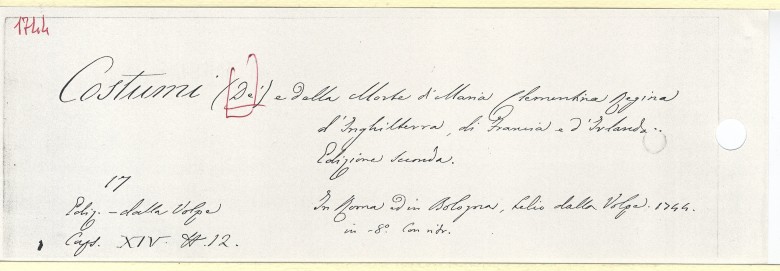 1744
Costumi (De') e della Morte di Maria Clementina Regina
d'Inghilterra, di Francia e d'Irlanda.
Edizione Seconda.
17
Ediz. - dalla Volpe
Caps. XIV. N. 12.
In Roma ed in Bologna, Lelio dalla Volpe. 1744.
in -8° Con ritr.